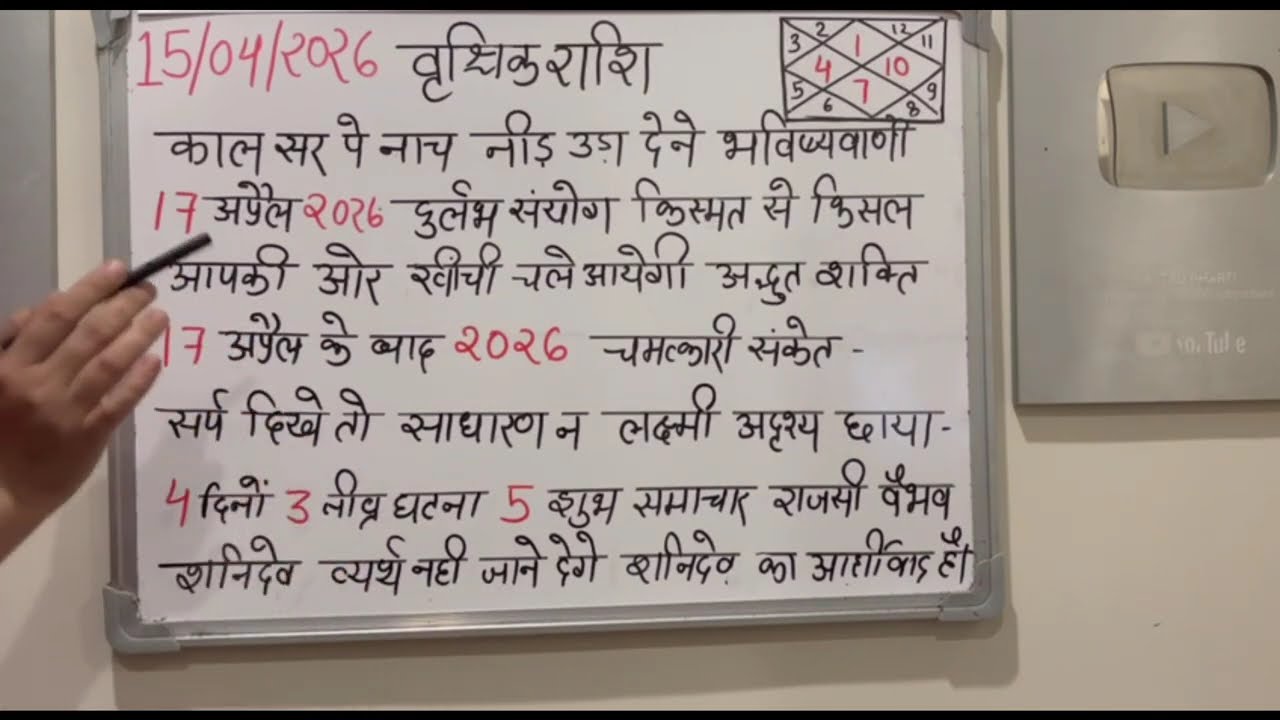 15/04/२०२६ वृश्चिक राशि
2 12
3 1 11
4 10
5 7 9
6 8
काल सर पे नाच नीड़ उड़ा देने भविष्यवाणी
17 अप्रैल २०२६ दुर्लभ संयोग किस्मत से किसल
आपकी ओर खीची चले आयेगी अद्भुत शक्ति
17 अप्रैल के बाद २०२६ चमत्कारी संकेत -
सर्प दिखे तो साधारण न लक्ष्मी अदृश्य छाया -
4 दिनों 3 तीव्र घटना 5 शुभ समाचार राजसी वैभव
शनिदेव व्यर्थ नही जाने देगे शनिदेव का आर्शीवाद है।
YouTube